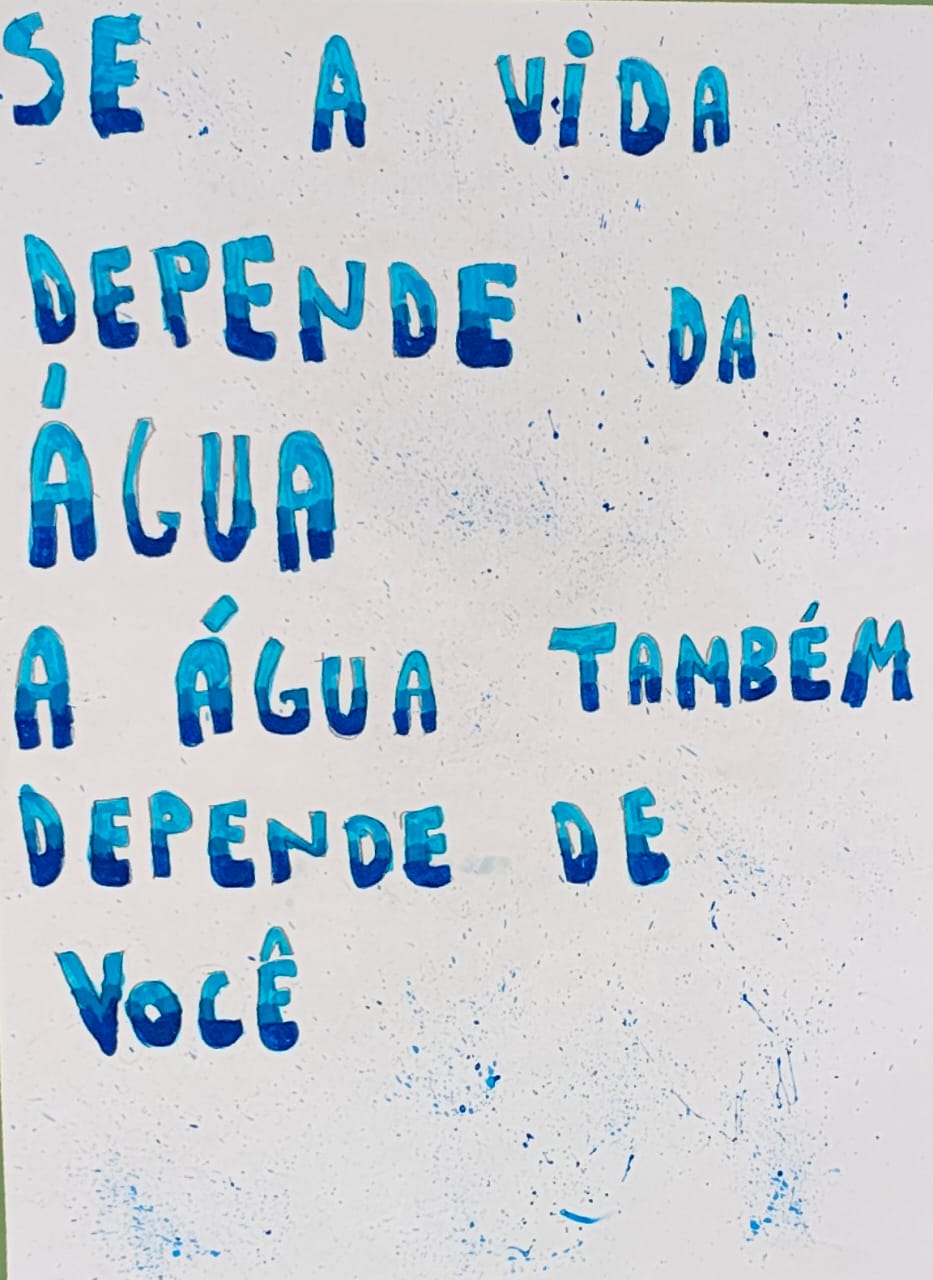 SE A ViDA
DEPENDE DA
ÁGUA
A ÁGUA TAMBÉM
DEPENDE DE
VOCÊ